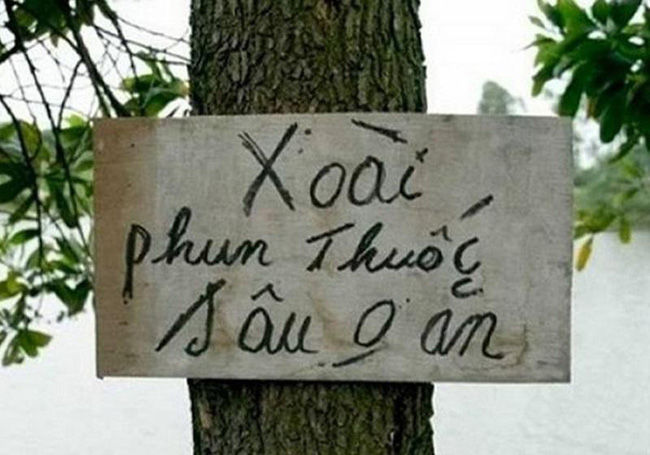 Xoài
phun Thuốc
sâu 0 ăn